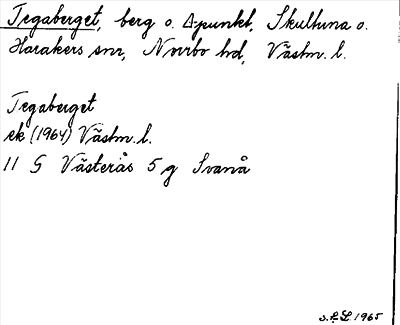 Tegaberget, berg o. Δpunkt, Skultuna o.
Harakers snr, Norrbo hd, Västm. l.
Tegaberget
ek (1964) Västm. l.
11 G Västerås 5 g Svanå
1965